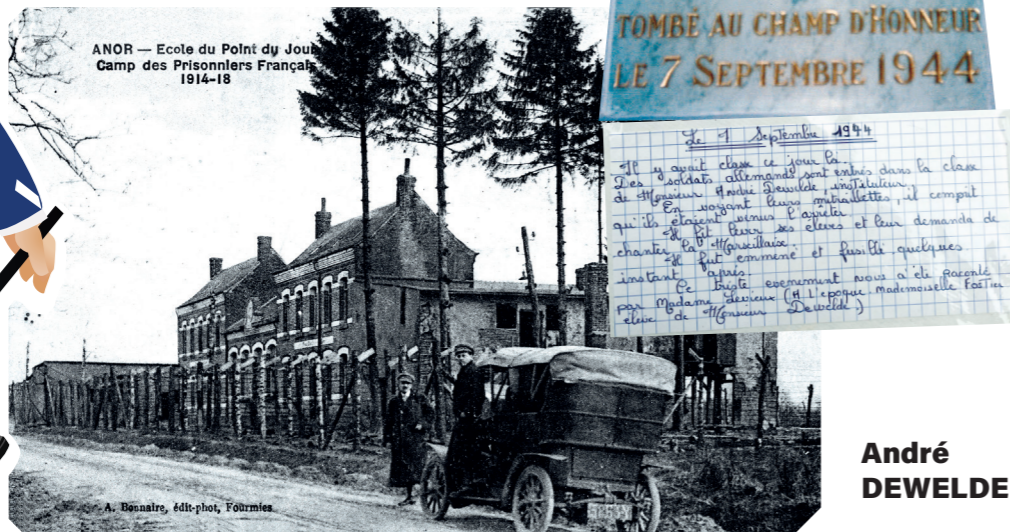 ANOR — Ecole du Point du Jour
Camp des Prisonniers Français
1914-18
TOMBÉ AU CHAMP D'HONNEUR
LE 7 SEPTEMBRE 1944
Le 1 Septembre 1944
Il y avait classe ce jour là.
Des soldats allemands sont entrés dans la classe
de Monsieur André Dewelde, instituteur.
En voyant leurs mitraillettes, il comprit
qu'ils étaient venus l'arrêter.
Il fit lever ses élèves et leur demanda de
chanter la Marseillaise.
Il fut emmené et fusillé quelques
instant après.
Ce triste evenement nous a été Raconté
par Madame Levieux (A l'epoque Mademoiselle
élève de Monsieur Dewelde.)
A. Bonnaire, édit-phot, Fourmies
André
DEWELDE